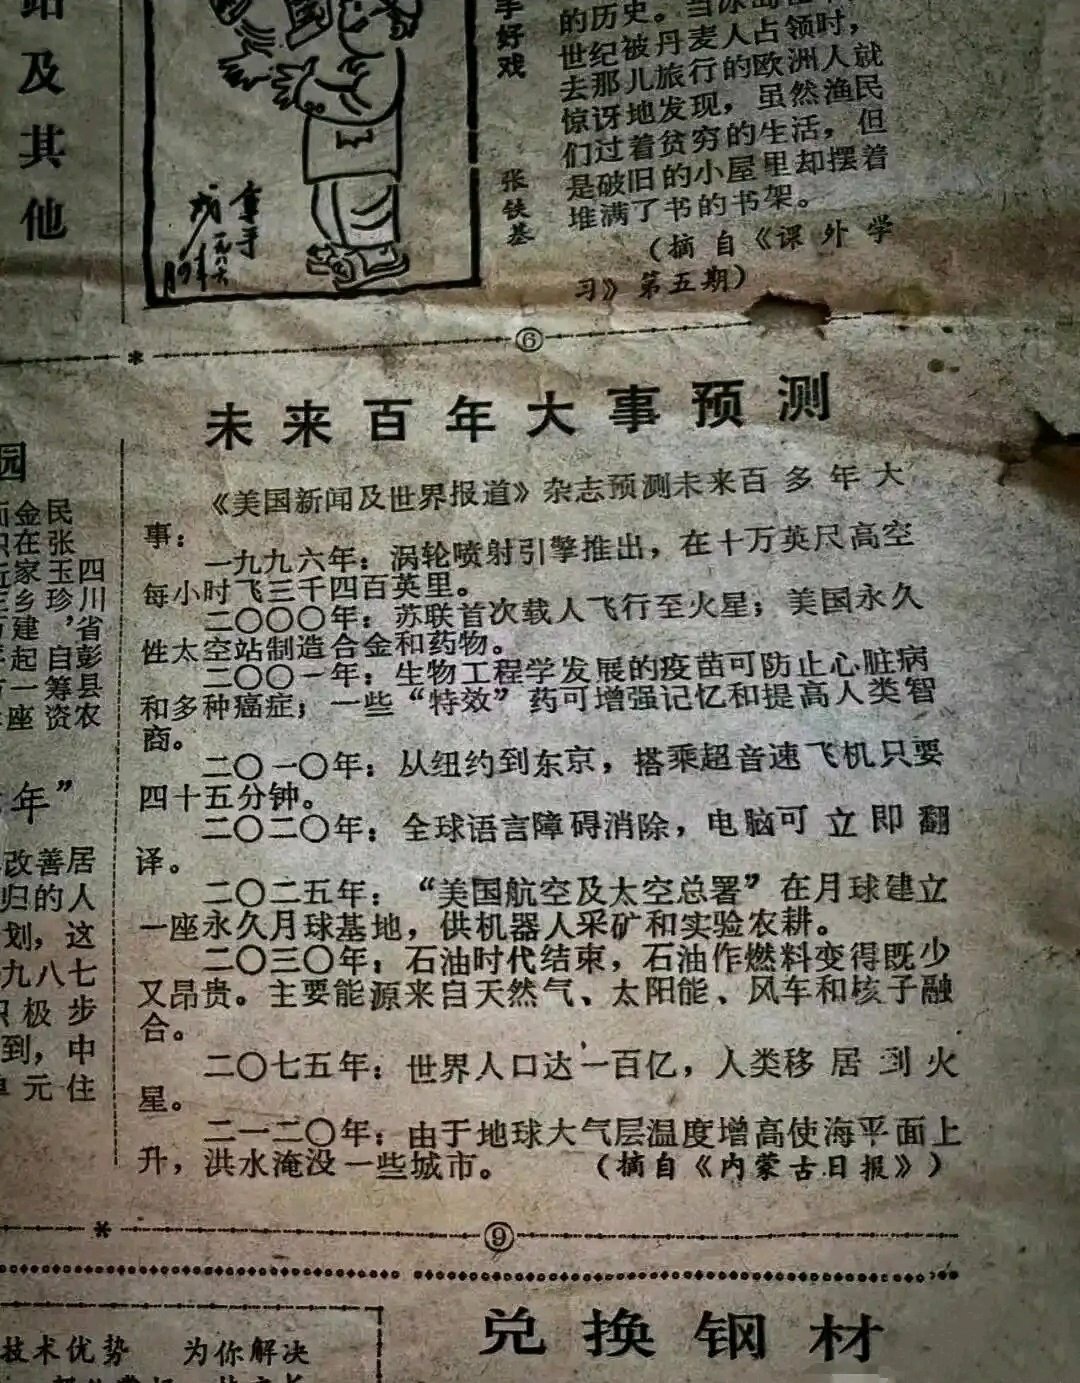 及
其
他
好
戏
张
铁
基
的历史。当冰岛在
世纪被丹麦人占领时，
去那儿旅行的欧洲人就
惊讶地发现，虽然渔民
们过着贫穷的生活，但
是破旧的小屋里却摆着
堆满了书的书架。
（摘自《课外学
习》第五期）
⑥
未来百年大事预测
《美国新闻及世界报道》杂志预测未来百多年大
事：
一九九六年：涡轮喷射引擎推出，在十万英尺高空
每小时飞三千四百英里。
二〇〇〇年：苏联首次载人飞行至火星；美国永久
性太空站制造合金和药物。
二〇〇一年：生物工程学发展的疫苗可防止心脏病
和多种癌症；一些“特效”药可增强记忆和提高人类智
商。
二〇一〇年：从纽约到东京，搭乘超音速飞机只要
四十五分钟。
二〇二〇年：全球语言障碍消除，电脑可立即翻
译。
二〇二五年：“美国航空及太空总署”在月球建立
一座永久月球基地，供机器人采矿和实验农耕。
二〇三〇年：石油时代结束，石油作燃料变得既少
又昂贵。主要能源来自天然气、太阳能、风车和核子融
合。
二〇七五年：世界人口达一百亿，人类移居到火
星。
二一二〇年：由于地球大气层温度增高使海平面上
升，洪水淹没一些城市。（摘自《内蒙古日报》）
⑨
园
四川省彭县农
民张玉珍，自筹资
金在家乡建起一座
年”
改善居
归的人
划，这
九八七
极步
到，中
单元住
兑换钢材
技术优势 为你解决